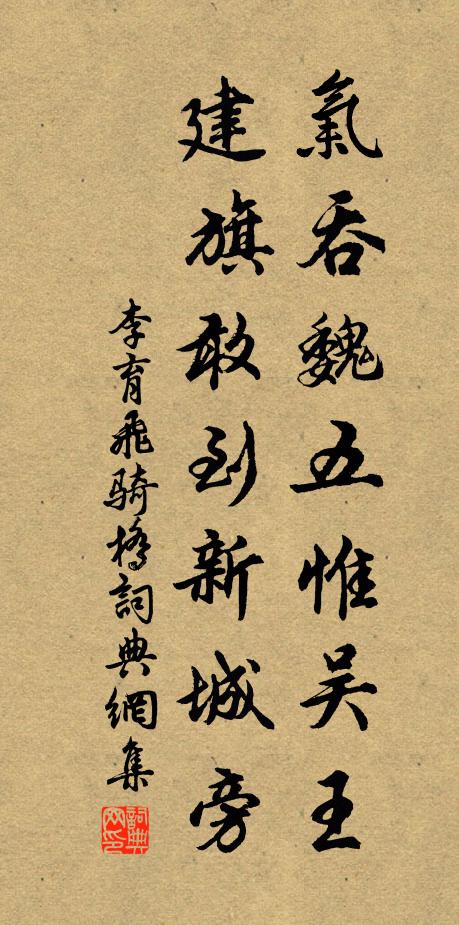 氣吞魏五惟吴王
建旗敢到新城旁
李育飛騎橋詞典網集
詞典网印